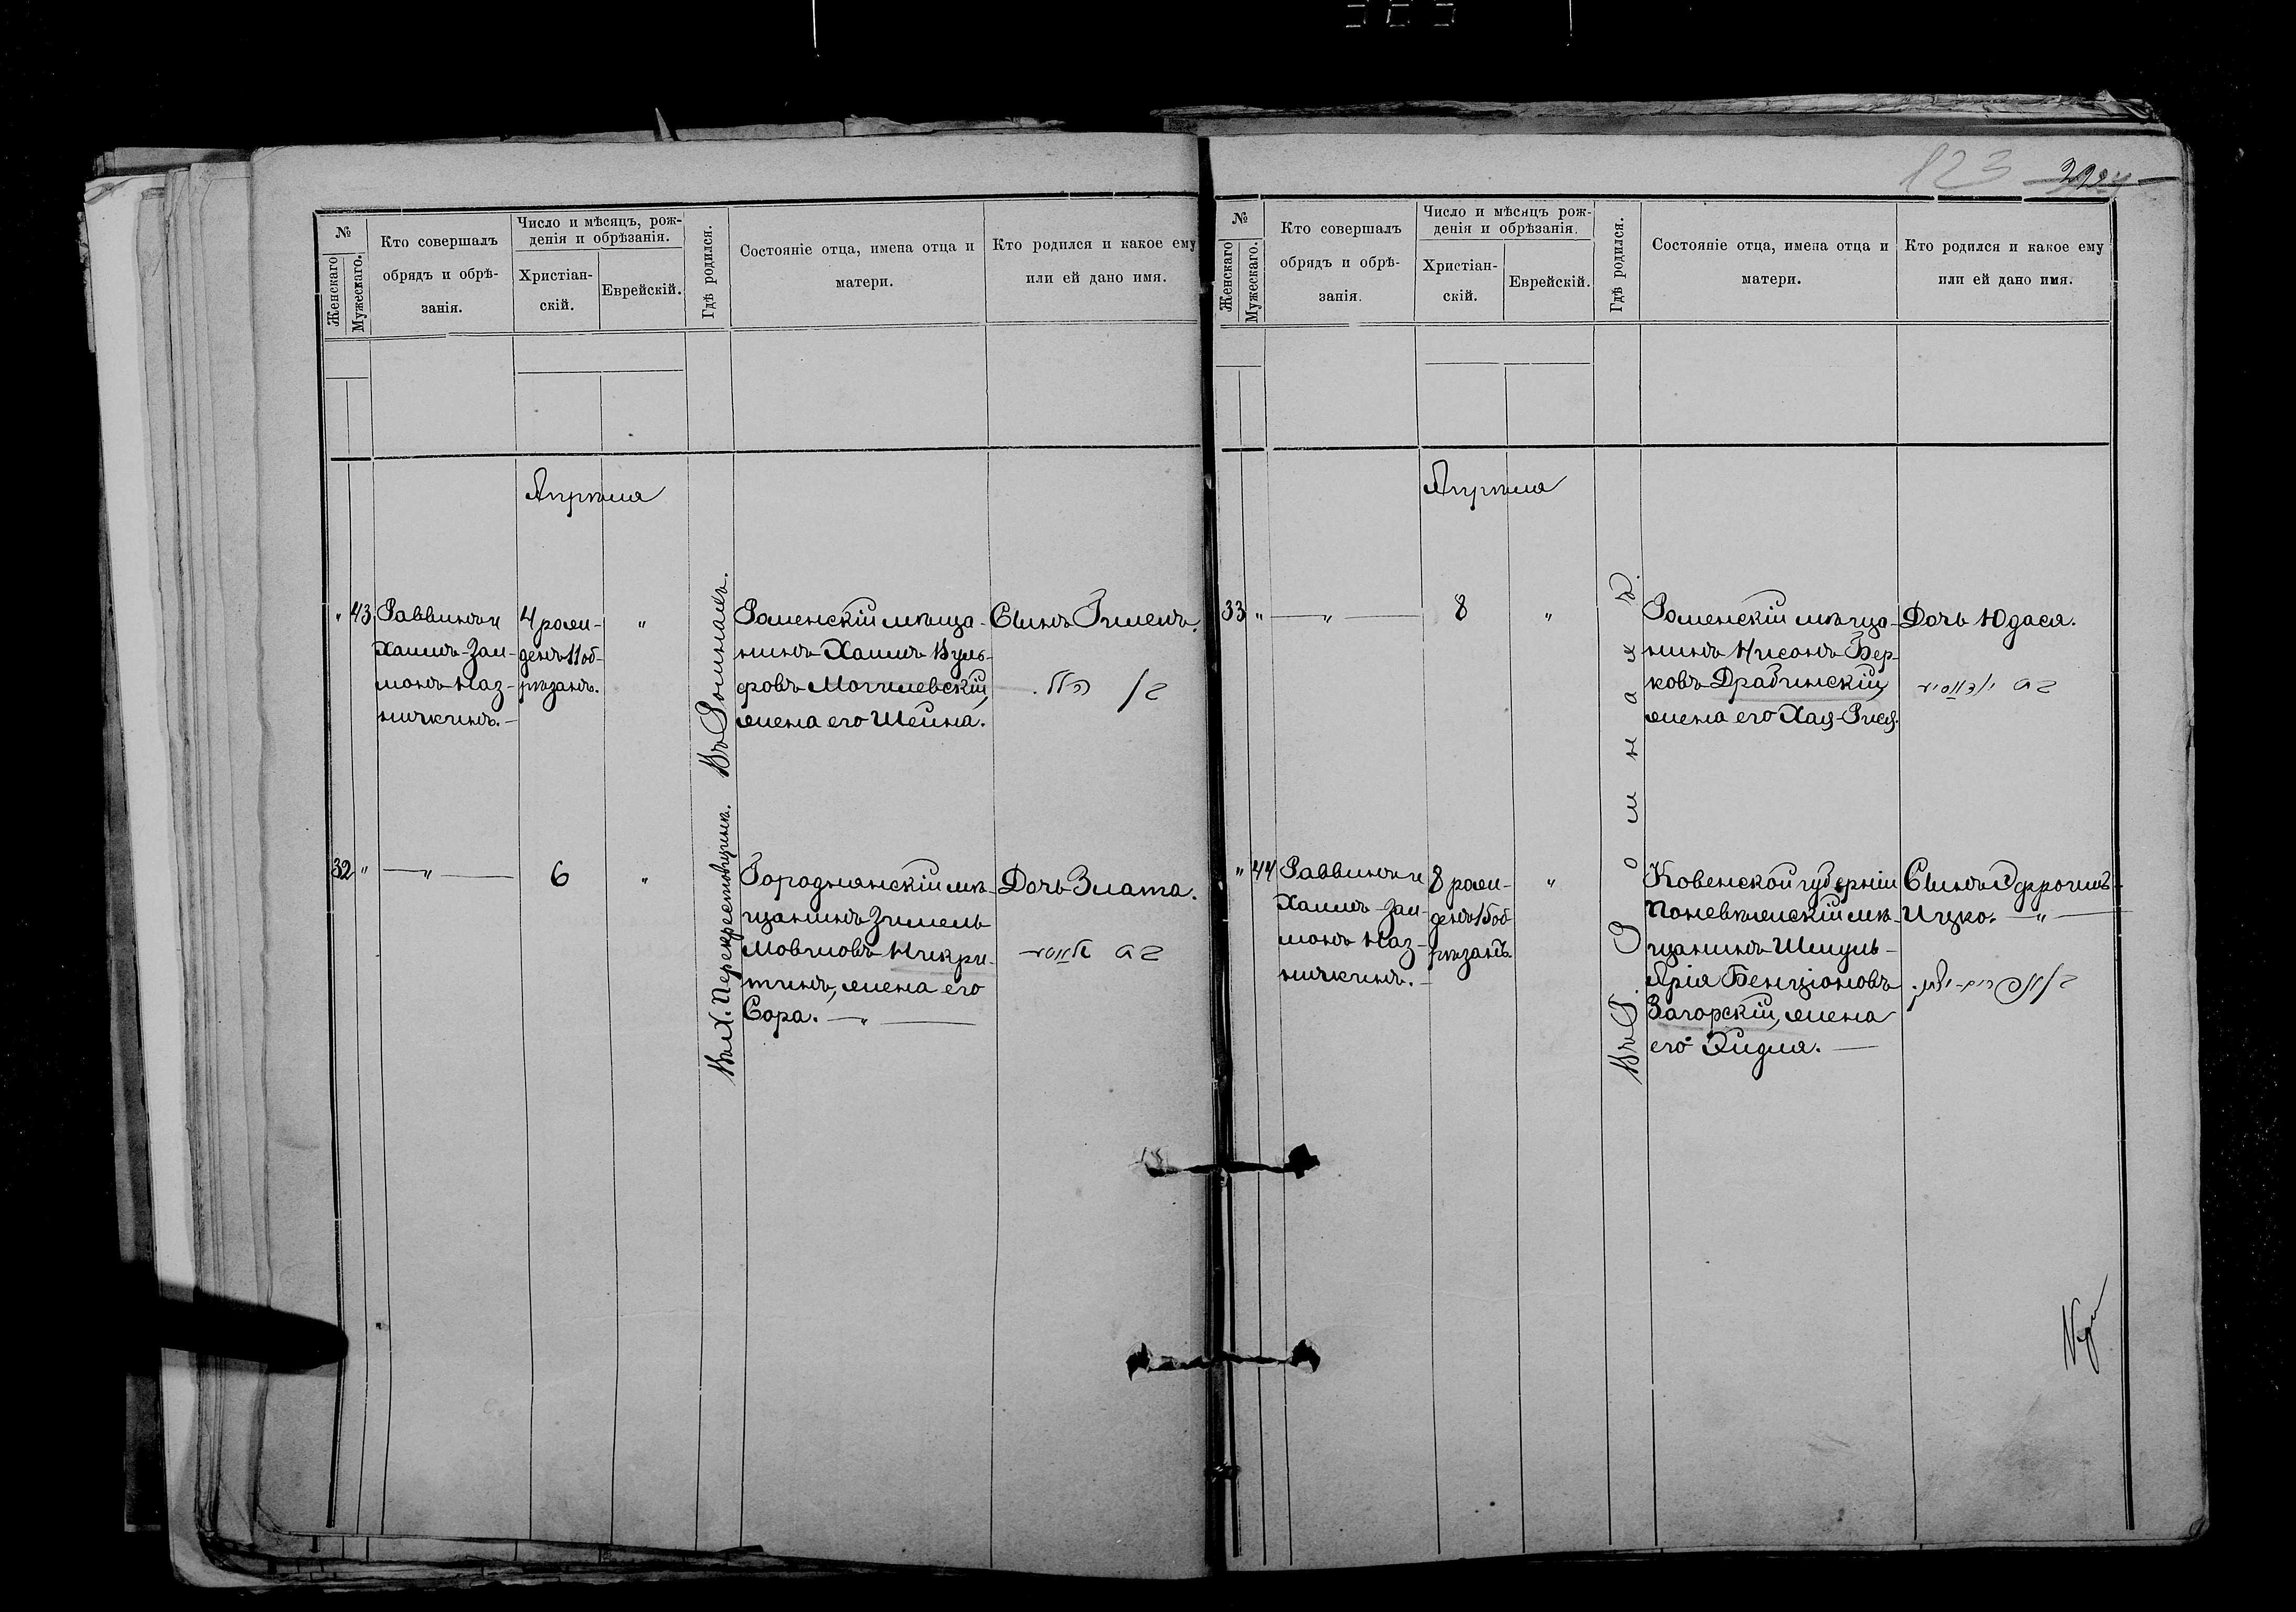 №
Женскаго
Мужескаго.
Кто совершалъ
обрядъ и обрѣ-
занія.
Число и мѣсяцъ, рож-
денія и обрѣзанія.
Христіан-
скій.
Еврейскій.
Гдѣ родился.
Состояніе отца, имена отца и
матери.
Кто родился и какое ему
или ей дано имя.
Апрѣля
„ 43
Раввинъ и
Хаимъ-Зал-
монъ Наз-
ничкинъ.
4 рожд-
денъ 11 об-
рѣзанъ.
„
Въ Ромнахъ.
Роменскій мѣща-
нинъ Хаимъ Вуль-
фовъ Могилевскій,
жена его Шейна.
Сынъ Гилель.
32 „
„
6
„
Въ х. Перекрестовщинѣ.
Городнянскій мѣ-
щанинъ Зимель
Мовшовъ Никри-
тинъ, жена его
Сора. „
Дочь Злата.
123
№
Женскаго
Мужескаго.
Кто совершалъ
обрядъ и обрѣ-
занія.
Число и мѣсяцъ рож-
денія и обрѣзанія.
Христіан-
скій.
Еврейскій.
Гдѣ родился.
Состояніе отца, имена отца и
матери.
Кто родился и какое ему
или ей дано имя.
Апрѣля
33 „
„
8
„
Въ Г. Ромнахъ.
Роменскій мѣща-
нинъ Нисонъ Бер-
ковъ Драбинскій,
жена его Хая-Рися.
Дочь Юдася.
„ 44
Раввинъ и
Хаимъ-Зал-
монъ Наз-
ничкинъ.
8 рожд-
денъ 15 об-
рѣзанъ.
„
Ковенской губерніи
Поневѣжскій мѣ-
щанинъ Шмуль-
Арія Бенціоновъ
Загорскій, жена
его Эйдля.
Сынъ Эфроимъ-
Ицко. „